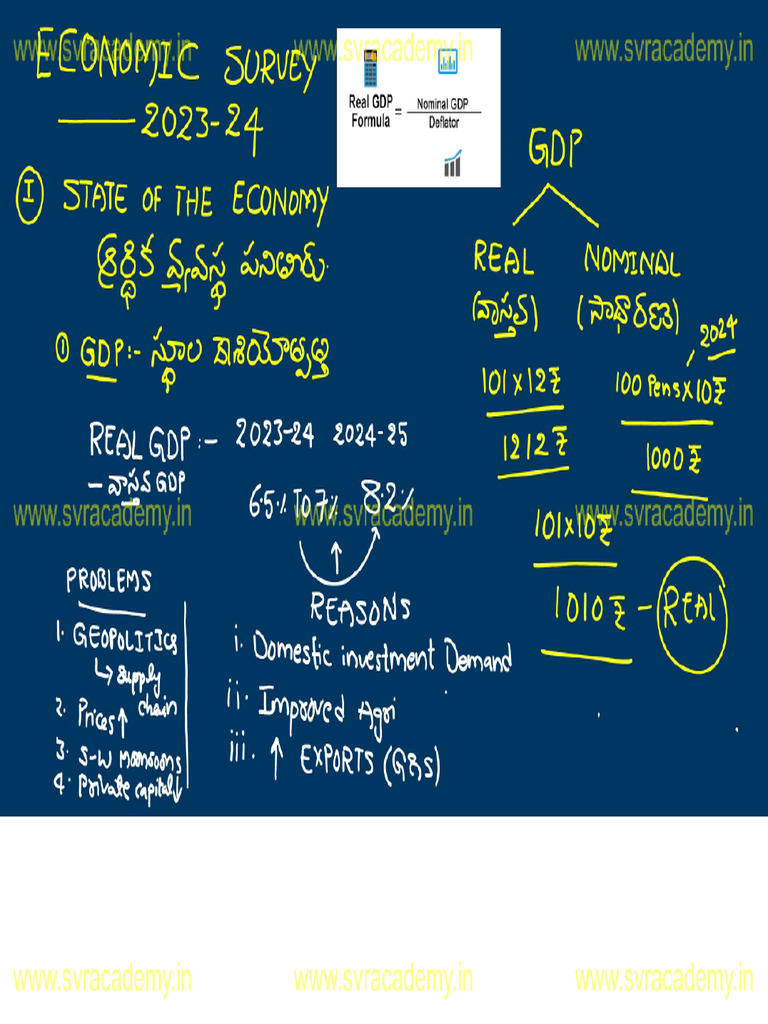 www.svracademy.in www.svracademy.in www.svracademy.in
ECONOMIC SURVEY
2023-24
Real GDP Formula = Nominal GDP / Deflator
I STATE OF THE ECONOMY
ఆర్థిక వ్యవస్థ పనితీరు.
① GDP:- స్థూల దేశీయోత్పత్తి
REAL GDP:- 2023-24 2024-25
- వాస్తవ GDP
6.5.% TO 7% 8.2%
www.svracademy.in www.svracademy.in www.svracademy.in
REASONS
i. Domestic investment Demand
ii. Improved Agri
iii. ↑ EXPORTS (G&S)
PROBLEMS
1. GEOPOLITICS
↳ supply chain
2. Prices↑
3. S-W monsoons
4. Private capital↓
GDP
REAL NOMINAL
(వాస్తవ) (సాధారణ)
2024
101 x 12₹ 100 Pens x 10₹
1212₹ 1000₹
101x10₹
1010₹ - REAL
www.svracademy.in www.svracademy.in www.svracademy.in